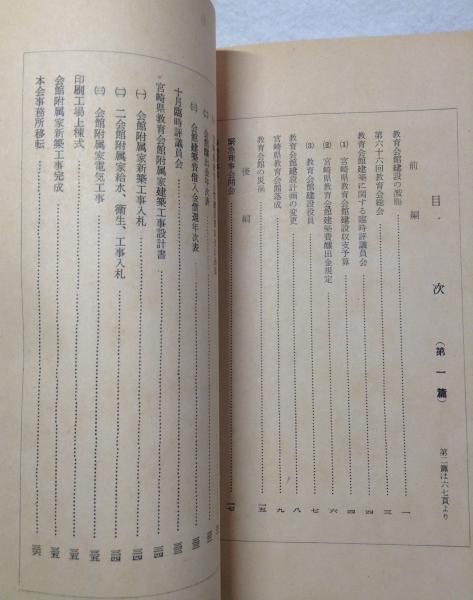 目次（第一篇）
第二篇は六七頁より
前編
教育会館建設の胎動……一
第六十六回教育会総会……三
教育会館建築に関する臨時評議員会……四
(1) 宮崎県教育会館建設収支予算……四
(2) 宮崎県教育会館建築費醵出金規定……六
(3) 教育会館建設役員……七
教育会館建設計画の変更……八
宮崎県教育会館落成……九
教育会館の災禍……一五
後編
緊急理事会開会……一七
(三) 会館建築費借入金償還年次表
十月臨時評議員会
宮崎県教育会館附属家建築工事設計書
(一) 会館附属家新築工事入札……三四
(二) 二会館附属家給水、衛生、工事入札……三四
(三) 会館附属家電気工事……三五
印刷工場上棟式……三五
会館附属家新築工事完成……三五
本会事務所移転……三六